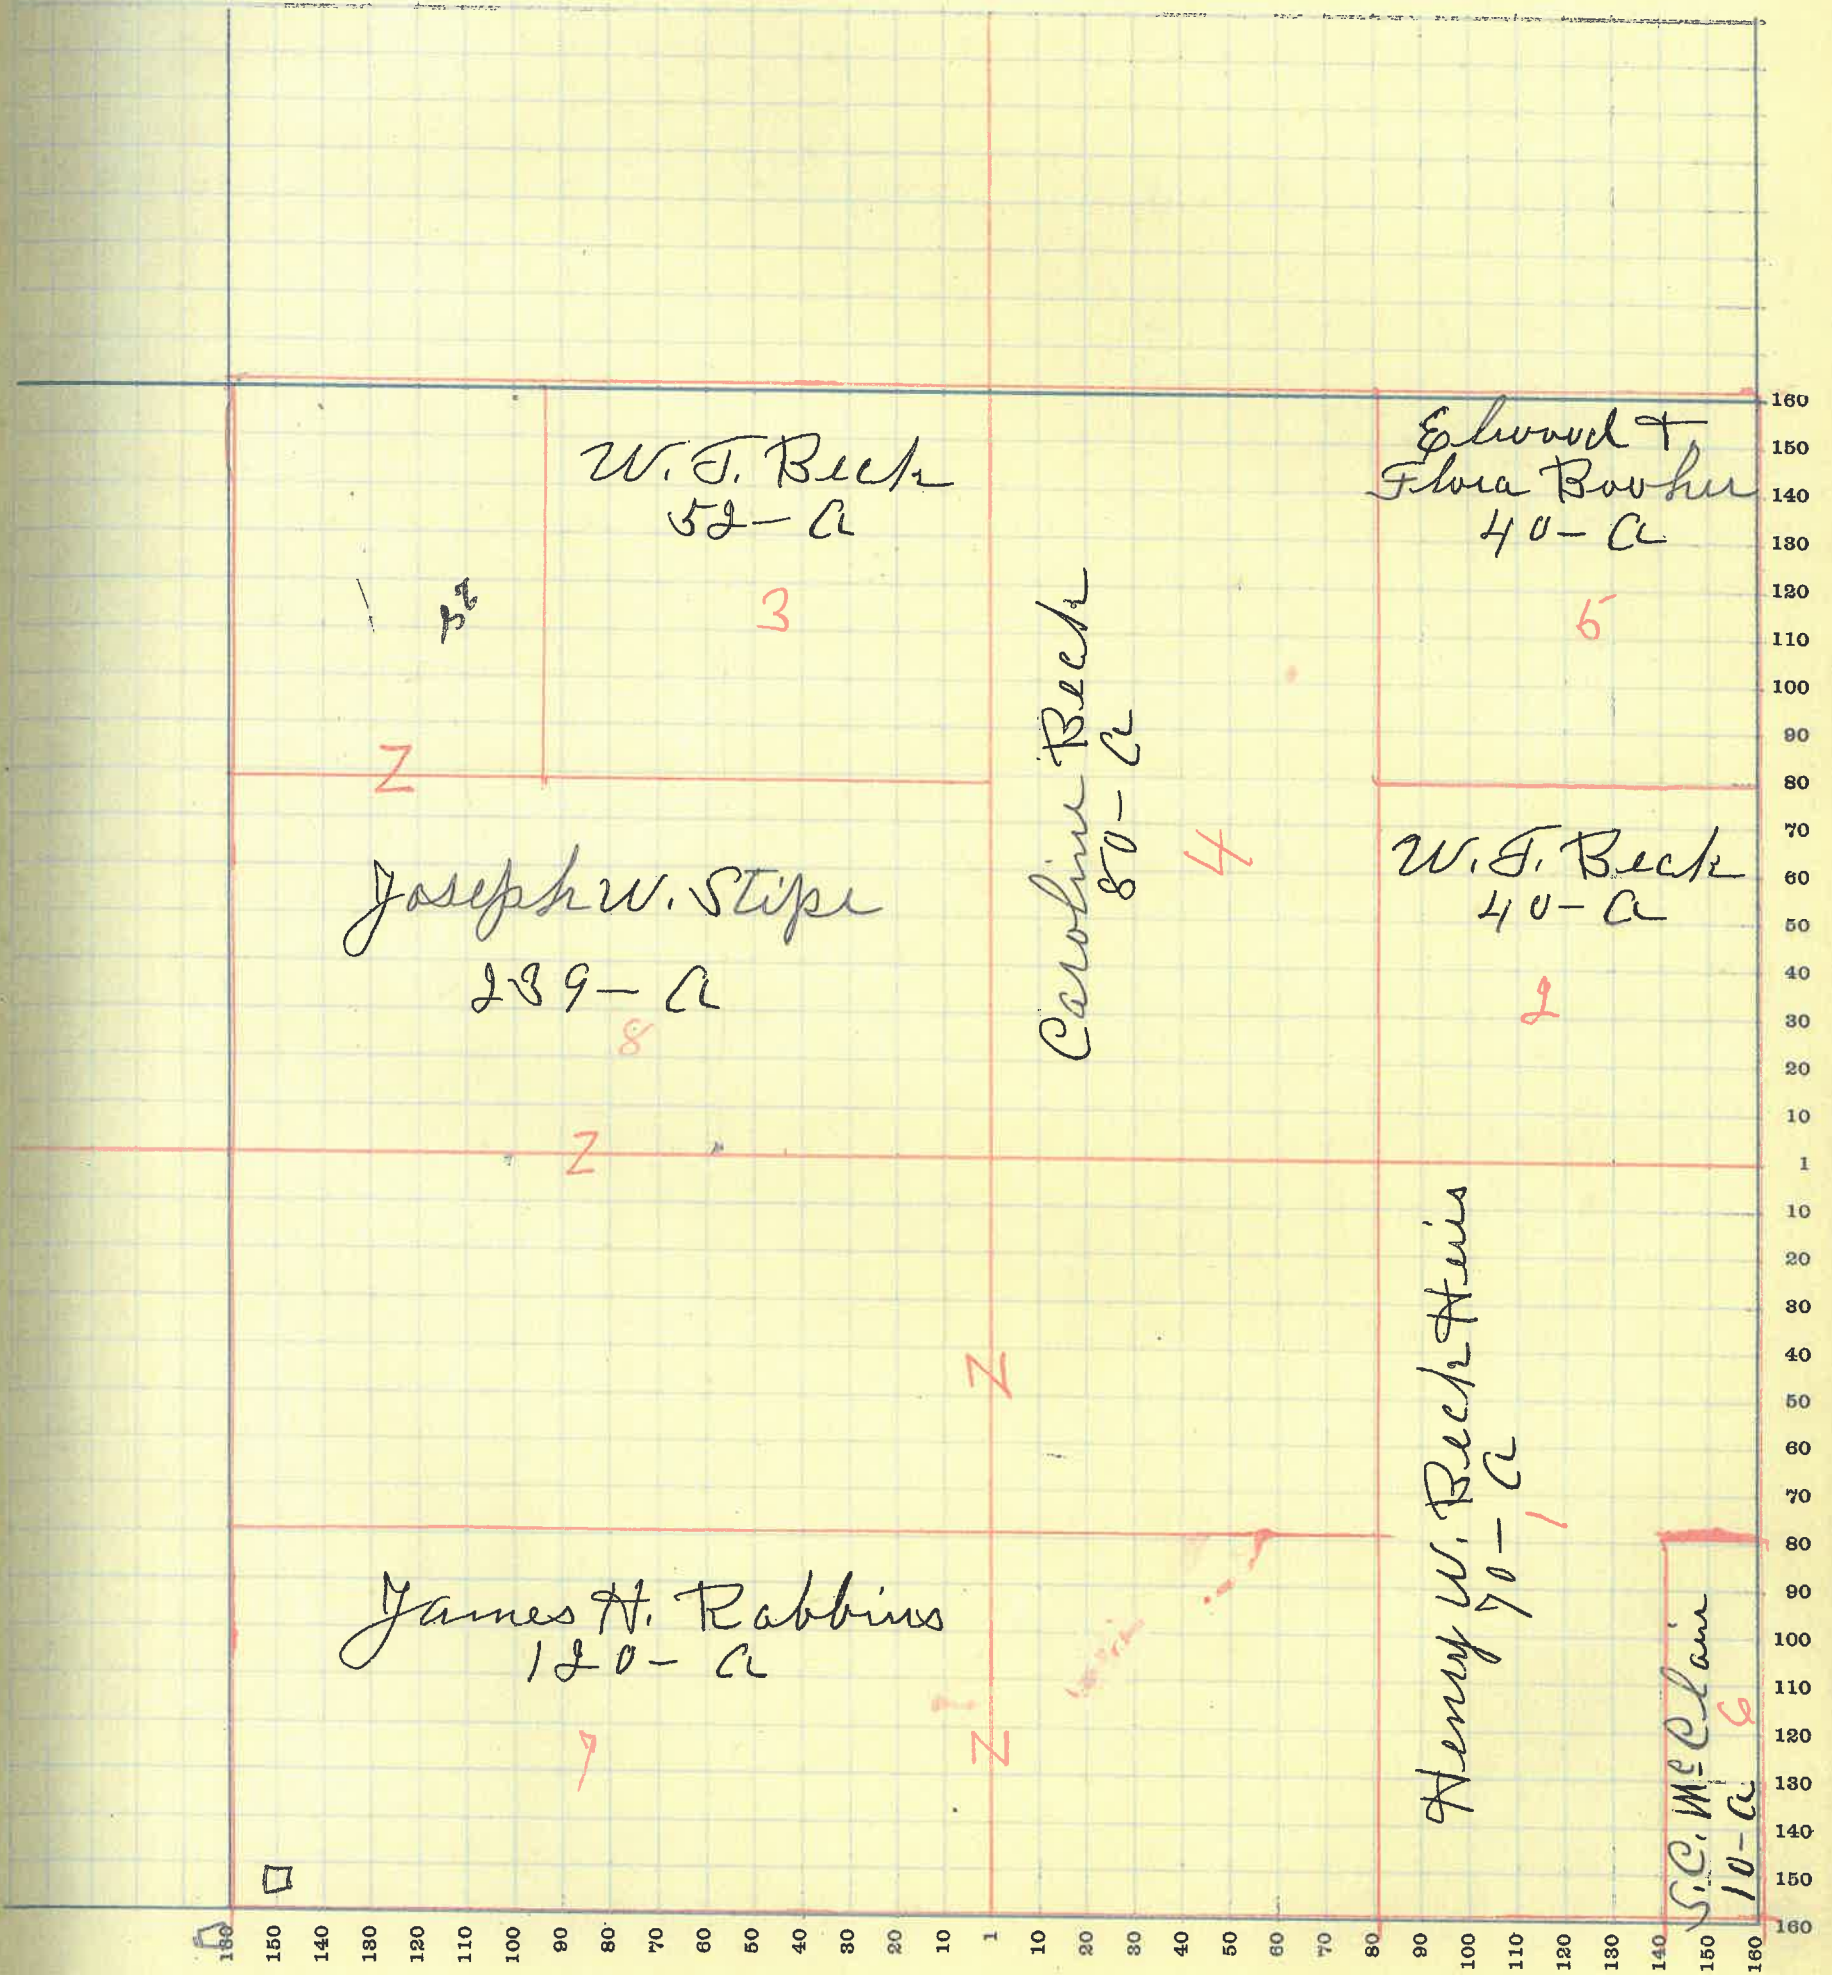 W. F. Beck
52 - A
3
Elwood +
Flora Booher
40 - A
5
32
Z
Caroline Beck
80 - A
4
W. F. Beck
40 - A
2
Joseph W. Stipe
239 - A
8
Z
Z
Henry W. Beck Heirs
70 - A
1
James H. Robbins
120 - A
7
Z
S. C. McClain
10 - A
6
160
150
140
130
120
110
100
90
80
70
60
50
40
30
20
10
1
10
20
30
40
50
60
70
80
90
100
110
120
130
140
150
160
160 150 140 130 120 110 100 90 80 70 60 50 40 30 20 10 1 10 20 30 40 50 60 70 80 90 100 110 120 130 140 150 160